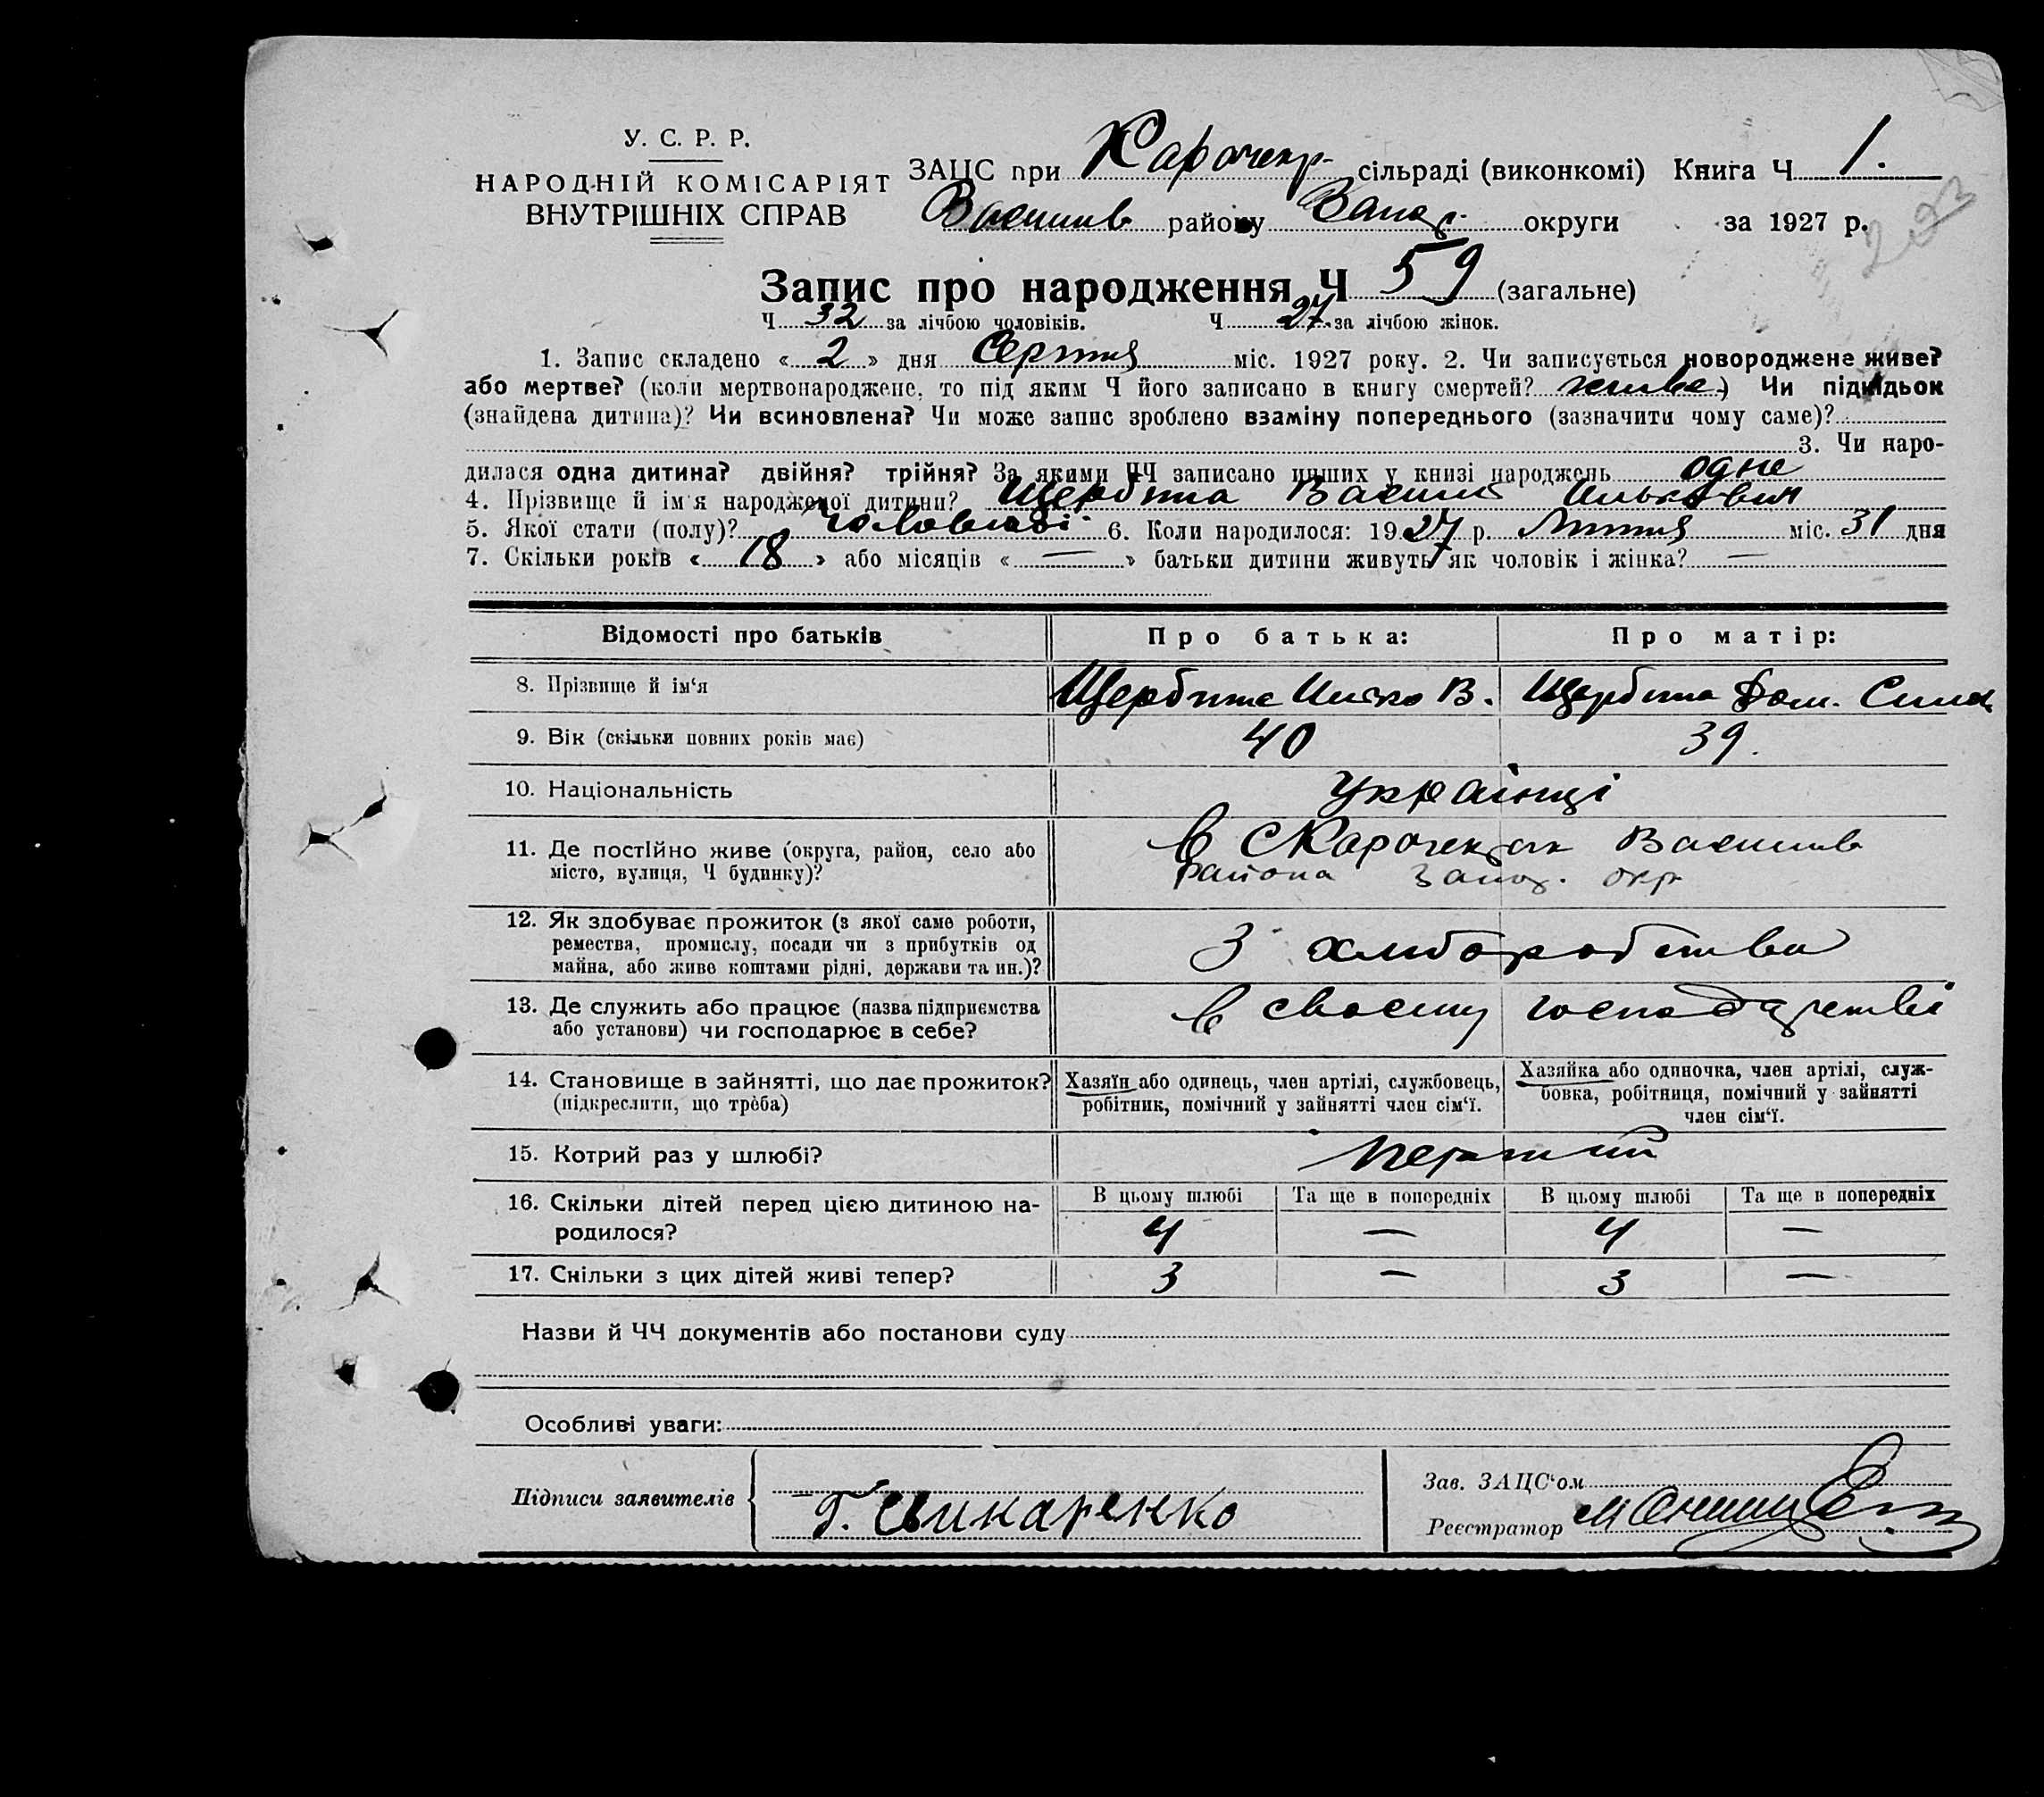 У. С. Р. Р.
НАРОДНІЙ КОМІСАРІЯТ
ВНУТРІШНІХ СПРАВ
ЗАЦС при сільраді (виконкомі) Книга Ч 1.
району Запоз. округи за 1927 р.
Запис про народження Ч 59 (загальне)
Ч 32 за лічбою чоловіків. Ч 27 за лічбою жінок.
1. Запис складено « 2 » дня Серпня міс. 1927 року. 2. Чи записується новороджене живе?
або мертве? (коли мертвонароджене, то під яким Ч його записано в книгу смертей? живе) Чи підкідьок
(знайдена дитина)? Чи всиновлена? Чи може запис зроблено взаміну попереднього (зазначити чому саме)?
3. Чи наро-
дилася одна дитина? двійня? трійня? За якими ЧЧ записано инших у книзі народжень одне
4. Прізвище й ім'я народженої дитини? Щербина Василь
5. Якої стати (полу)? 6. Коли народилося: 1927 р. Липня міс. 31 дня
7. Скільки років « 18 » або місяців « — » батьки дитини живуть як чоловік і жінка? —
Відомості про батьків Про батька: Про матір:
8. Прізвище й ім'я Щербина В. Щербина Дом.
9. Вік (скільки повних років має) 40 39.
10. Національність українці
11. Де постійно живе (округа, район, село або
місто, вулиця, Ч будинку)?
района Запоз. окр
12. Як здобуває прожиток (з якої саме роботи,
ремества, промислу, посади чи з прибутків од
майна, або живе коштами рідні, держави та ин.)?
З хліборобства
13. Де служить або працює (назва підприємства
або установи) чи господарює в себе?
в своєму господарстві
14. Становище в зайнятті, що дає прожиток?
(підкреслити, що треба)
Хазяїн або одинець, член артілі, службовець,
робітник, помічний у зайнятті член сім'ї.
Хазяйка або одиночка, член артілі, служ-
бовка, робітниця, помічний у зайнятті
член сім'ї.
15. Котрий раз у шлюбі? перший
16. Скільки дітей перед цією дитиною на-
родилося?
В цьому шлюбі Та ще в попередніх В цьому шлюбі Та ще в попередніх
4 — 4 —
17. Скільки з цих дітей живі тепер? 3 — 3 —
Назви й ЧЧ документів або постанови суду
Особливі уваги:
Підписи заявителів
Зав. ЗАЦС'ом
Реєстратор